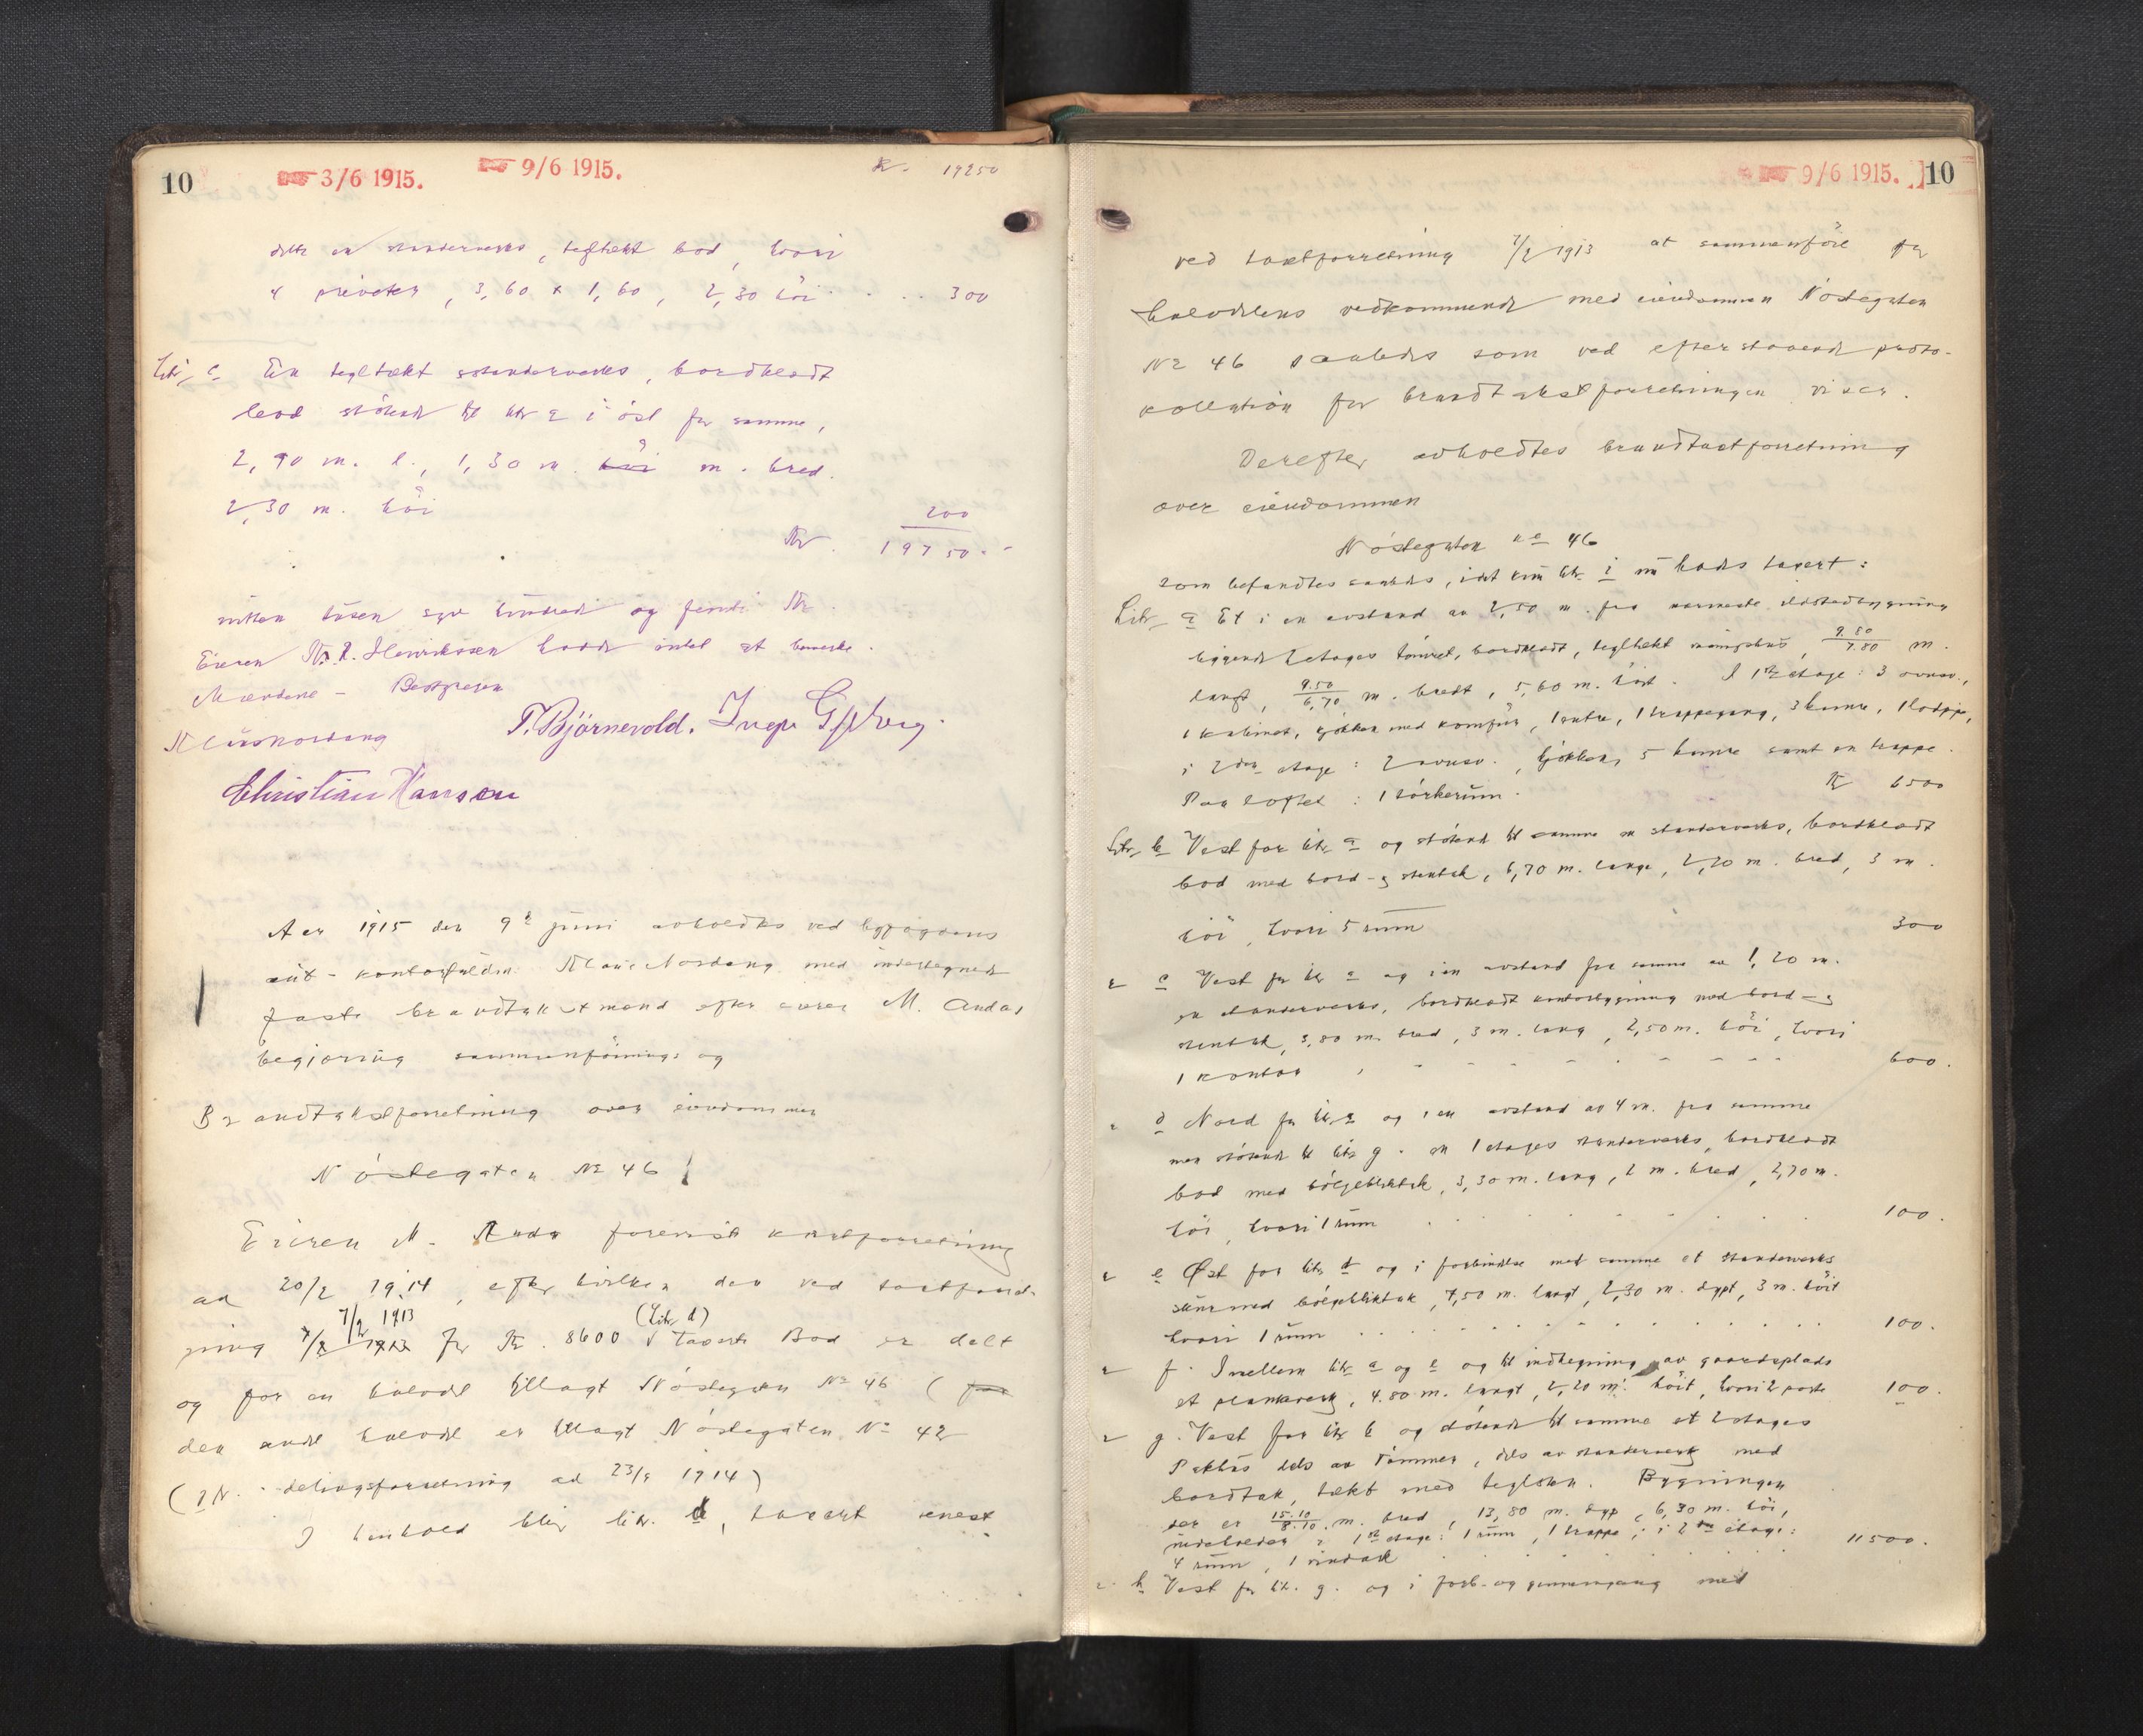 10 3/6 1915. 9/6 1915. Kr. 19250
dette en standerverks, tegltækt bod, hvori
4 priveter, 3,60 x 1,60, 2,30 höi . . . 300
Litr. c En tegltækt standerverks, bordklædt
bod stötende til litr a i öst for samme,
2,90 m. l., 1,30 m. höi m. bred.
2,30 m. höi
200
Kr. 19750.-
nitten tusen syv hundrede og femti Kr.
Eieren Henriksen hadde intet at bemerke.
Klaus Nordang T. Bjørnevold.
Christian Hansen
Aar 1915 den 9de juni avholdtes ved byfogdens
aut. kontorfuldm. Klaus Nordang med undertegnede
faste brandtakstmænd efter eieren M. Andas
begjæring sammenförnings og
Brandtakstforretning over eiendommen
Nöstegaten No 46
Eieren M. Anda foreviste kartforretning
ad 20/2 1914, efter hvilken den ved taxtforret-
ning 7/2 1913 7/2 1913 for Kr. 8600 (Litr d) taxerte Bod er delt
og for en halvdel tillagt Nöstegaten No 46 ( for
den andre halvdel er tillagt Nöstegaten No 42
delingsforretning ad 1914)
I henhold blir litr. d, taxert
9/6 1915. 10
ved taxtforretning 7/2 1913 at sammenföre for
halvdelens vedkommende med eiendommen Nöstegaten
No 46 saaledes som ved efterstaaende proto-
kollation for brandtakstforretningen viser.
Derefter avholdtes brandtaxtforretning
over eiendommen
Nöstegaten no 46
som befandtes saaledes, idet kun litr. i nu hadde taxert:
Litr. a Et i en avstand av 2,50 m. fra nærmeste ildstedbygning
liggende 2 etages tömret, bordklædt, tegltækt vaaningshus, 9.80/7.80 m.
langt, 9.50/6,70 m. bredt, 5,60 m. höit. I 1ste etage: 3 ovnsv.,
1 kabinet, kjökken med komfur, 1 entre, 1 trappegang, 3 kamre, 1 trappe,
i 2den etage: 2 ovnsv., kjökken, 5 kamre samt en trappe.
Paa loftet: 1 törkerum. Kr 6500
Litr. b Vest for litr. a og stötende til samme en standerverks, bordklædt
bod med bord- og stentak, 6,70 m. lang, 2,20 m. bred, 3 m.
höi, hvori 5 rum 300
" c Vest for litr a og i en avstand fra samme av 1,20 m.
en standerverks, bordklædt kontorbygning med bord- og
stentak, 3,80 m. bred, 3 m. lang, 2,50 m. höi, hvori
1 kontor 600.
" d Nord for litr. a og i en avstand av 4 m. fra samme
men stötende til litr g. en 1 etages standerverks, bordklædt
bod med bölgebliktak, 3,30 m. lang, 2 m. bred, 2,70 m.
höi, hvori 1 rum 100.
" e Øst for litr. d og i forbindelse med samme et standerverks
skur med bölgebliktak, 7,50 m. langt, 2,30 m. dypt, 3 m. höit
hvori 1 rum 100.
" f. Imellem litr. a og e og til indhegning av gaardsplads
et plankverk, 4.80 m. langt, 2,20 m. höit, hvori 2 porte 100.
" g. Vest for litr b og stötende til samme et 2 etages
Pakhus dels av tömmer, dels av standerverk med
bordtak, tækt med teglsten. Bygningen
der er 15.10/8.10 m. bred, 13,80 m. dyp, 6,30 m. höi,
indeholder i 1ste etage: 1 rum, 1 trappe; i 2den etage:
4 rum, 1 vindark 11500.
" h Vest for litr. g. og i forb. og gjennemgang med